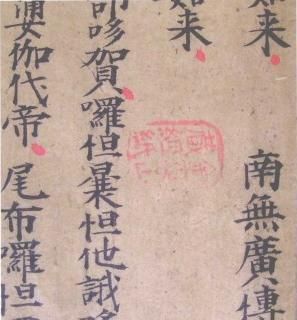 如来
南無廣博
如来
哆賀囉怛曩怛他誐哆
伽代帝
尾布囉怛